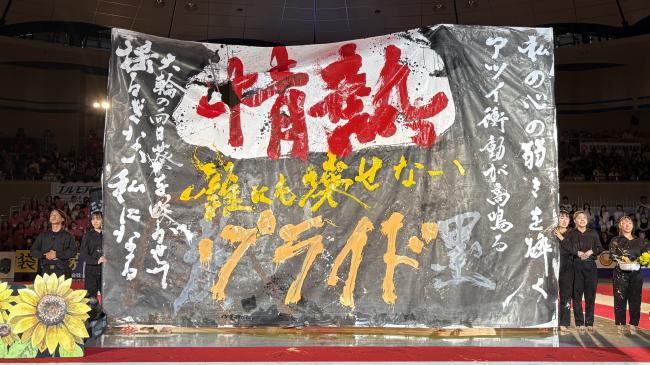 私の心の弱きを砕く
アツイ衝動が高鳴る
情熱
誰にも壊せない
プライド
墨
大輪の向日葵を咲かせて
揺るぎない私になる
エルモア
袋